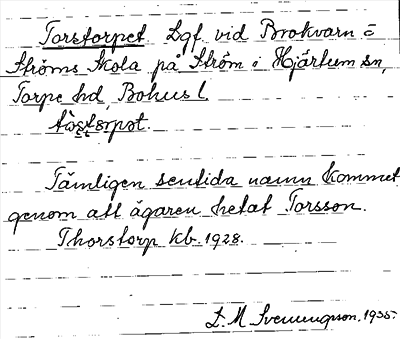 Torstorpet Lgf. vid Brokvarn o
Ströms Skola på Ström i Hjärtum sn,
Torpe hd, Bohusl.
Tämligen sentida namn kommet
genom att ägaren hetat Torsson.
Thorstorp kb. 1928.
L. M. Svenungson. 1935.